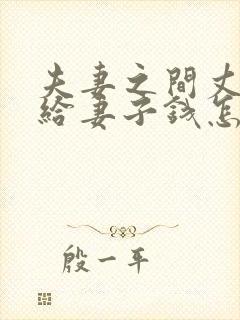 夫妻之間丈
給妻子錢怎
殷一平